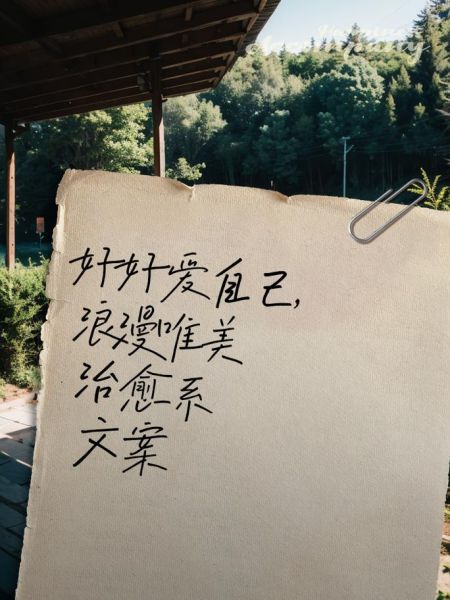 好好爱自己,
浪漫唯美
治愈系
文案